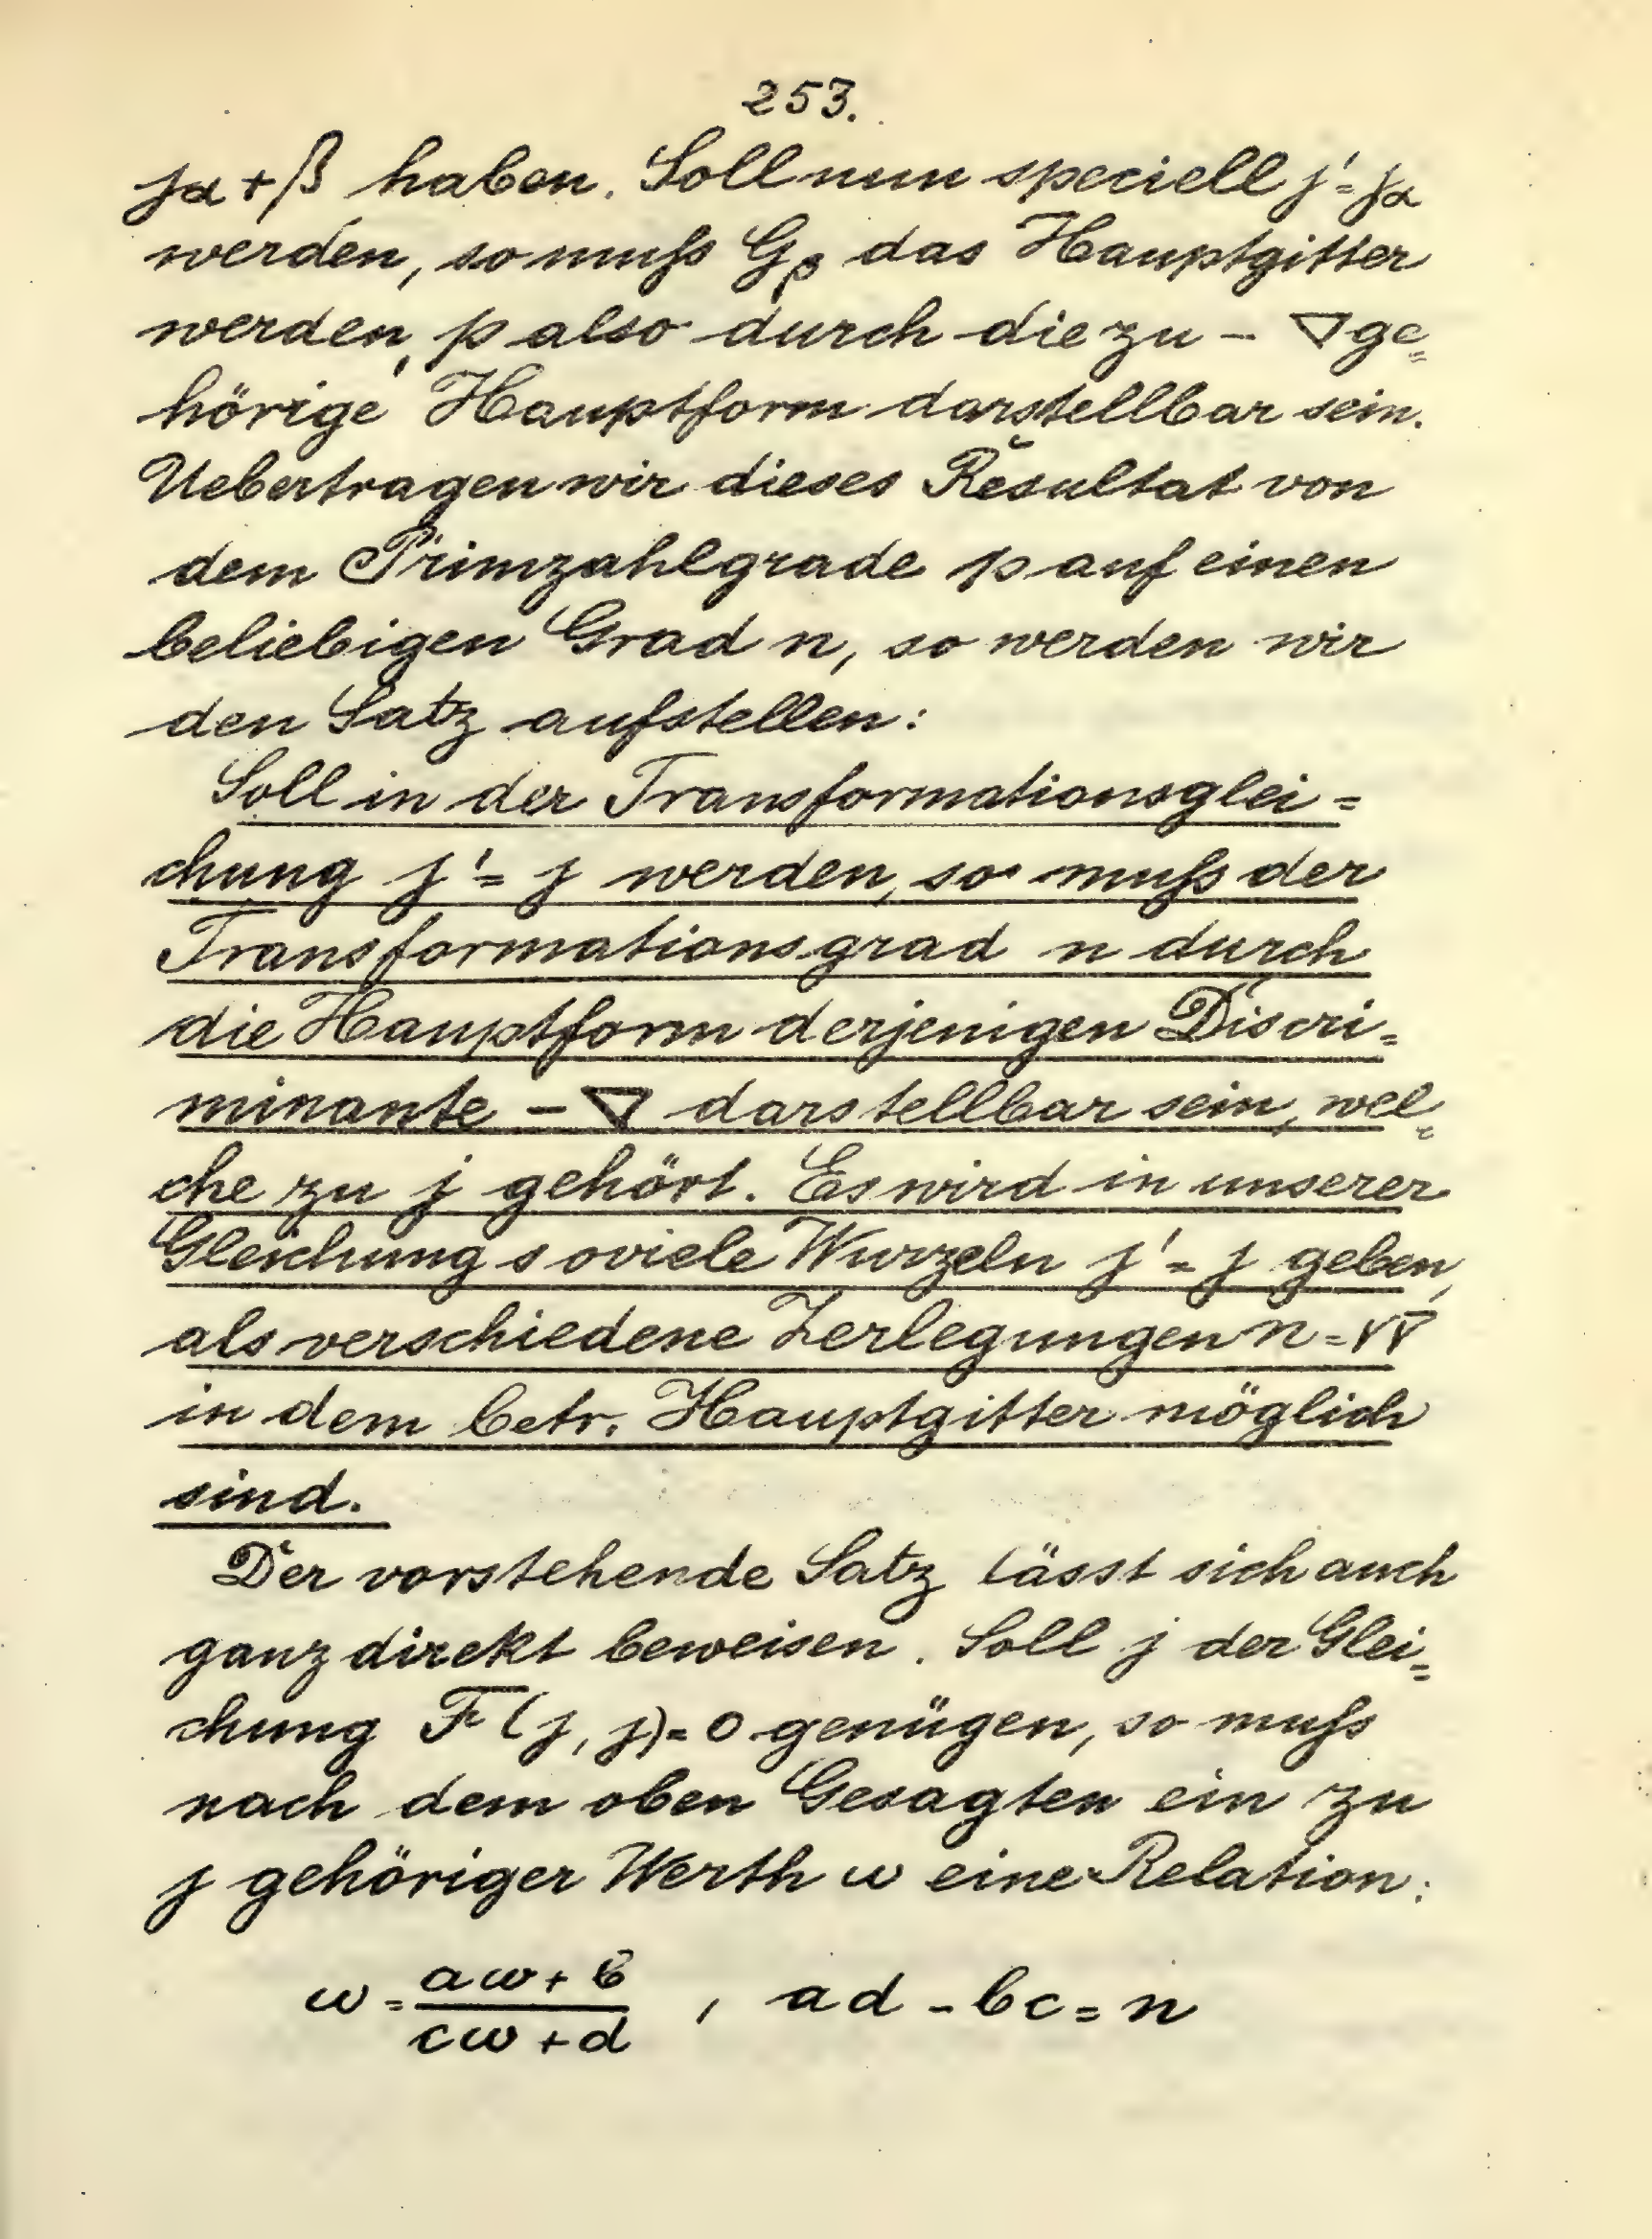 253.
j_{α+β} haben. Soll nun speciell j' = j_α
werden, so muſs G_β das Hauptgitter
werden, p also durch die zu - ∇ ge=
hörige Hauptform darstellbar sein.
Uebertragen wir dieses Resultat von
dem Primzahlgrade p auf einen
beliebigen Grad n, so werden wir
den Satz aufstellen:
Soll in der Transformationsglei=
chung j' = j werden, so muſs der
Transformationsgrad n durch
die Hauptform derjenigen Discri=
minante - ∇ darstellbar sein, wel=
che zu j gehört. Es wird in unserer
Gleichung soviele Wurzeln j' = j geben,
als verschiedene Zerlegungen n = νν̄
in dem betr. Hauptgitter möglich
sind.
Der vorstehende Satz lässt sich auch
ganz direkt beweisen. Soll j der Glei=
chung F(j, j) = 0 genügen, so muſs
nach dem oben Gesagten ein zu
j gehöriger Werth ω eine Relation:
ω = (aω + b)/(cω + d) , ad - bc = n